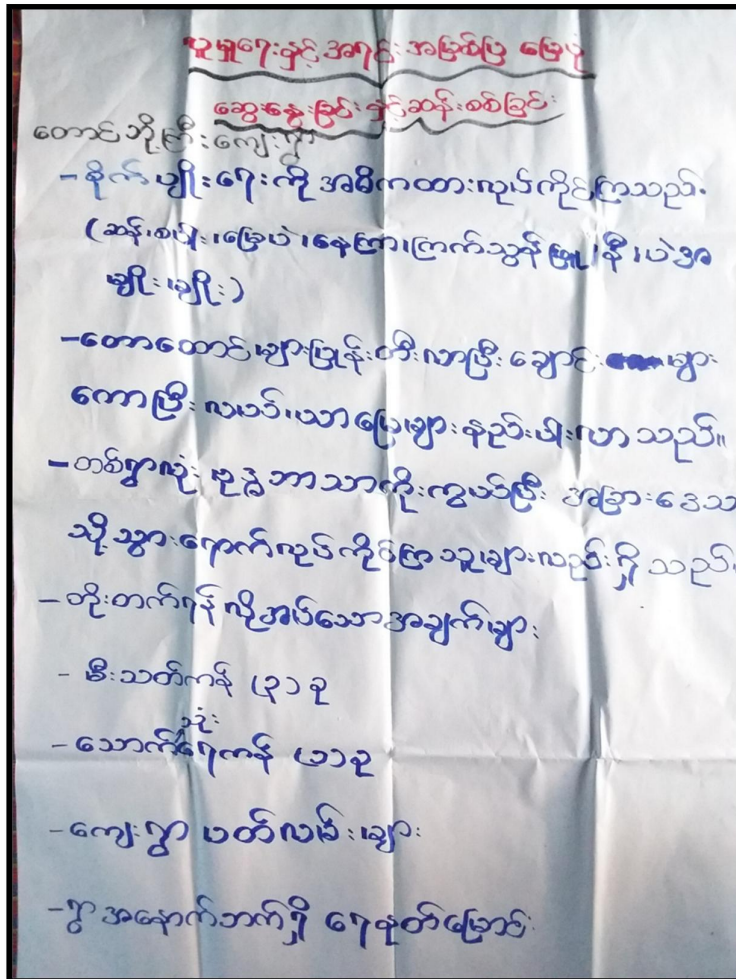 လူမှုရေးနှင့်အရင်းအမြစ်ပြ မြေပုံ
ဆွေးနွေးခြင်းနှင့်ဆန်းစစ်ခြင်း
တောင်ဘို့ကြီးကျေးရွာ
- စိုက်ပျိုးရေးကို အဓိကထားလုပ်ကိုင်ကြသည်.
(ဆန်၊စပါး၊မြေပဲ၊နေကြာ၊ကြက်သွန်ဖြူ၊နီ၊ပဲအ
မျိုးမျိုး)
- တောတောင်များပြုန်းတီးလာပြီး ချောင်းများ
ကောပြီး လယ်ယာမြေများနည်းပါးလာသည်။
- တစ်ရွာလုံး ဗုဒ္ဓဘာသာကိုးကွယ်ပြီး အခြားဒေသ
သို့သွားရောက်လုပ်ကိုင်ကြသူများလည်းရှိသည်.
- တိုးတက်ရန် လိုအပ်သောအချက်များ
- မီးသတ်ကန် (၃) ခု
- သောက်သုံးရေကန် (၁) ခု
- ကျေးရွာ ပတ်လမ်းများ
- ရွာအနောက်ဘက်ရှိ ရေနုတ်မြောင်း